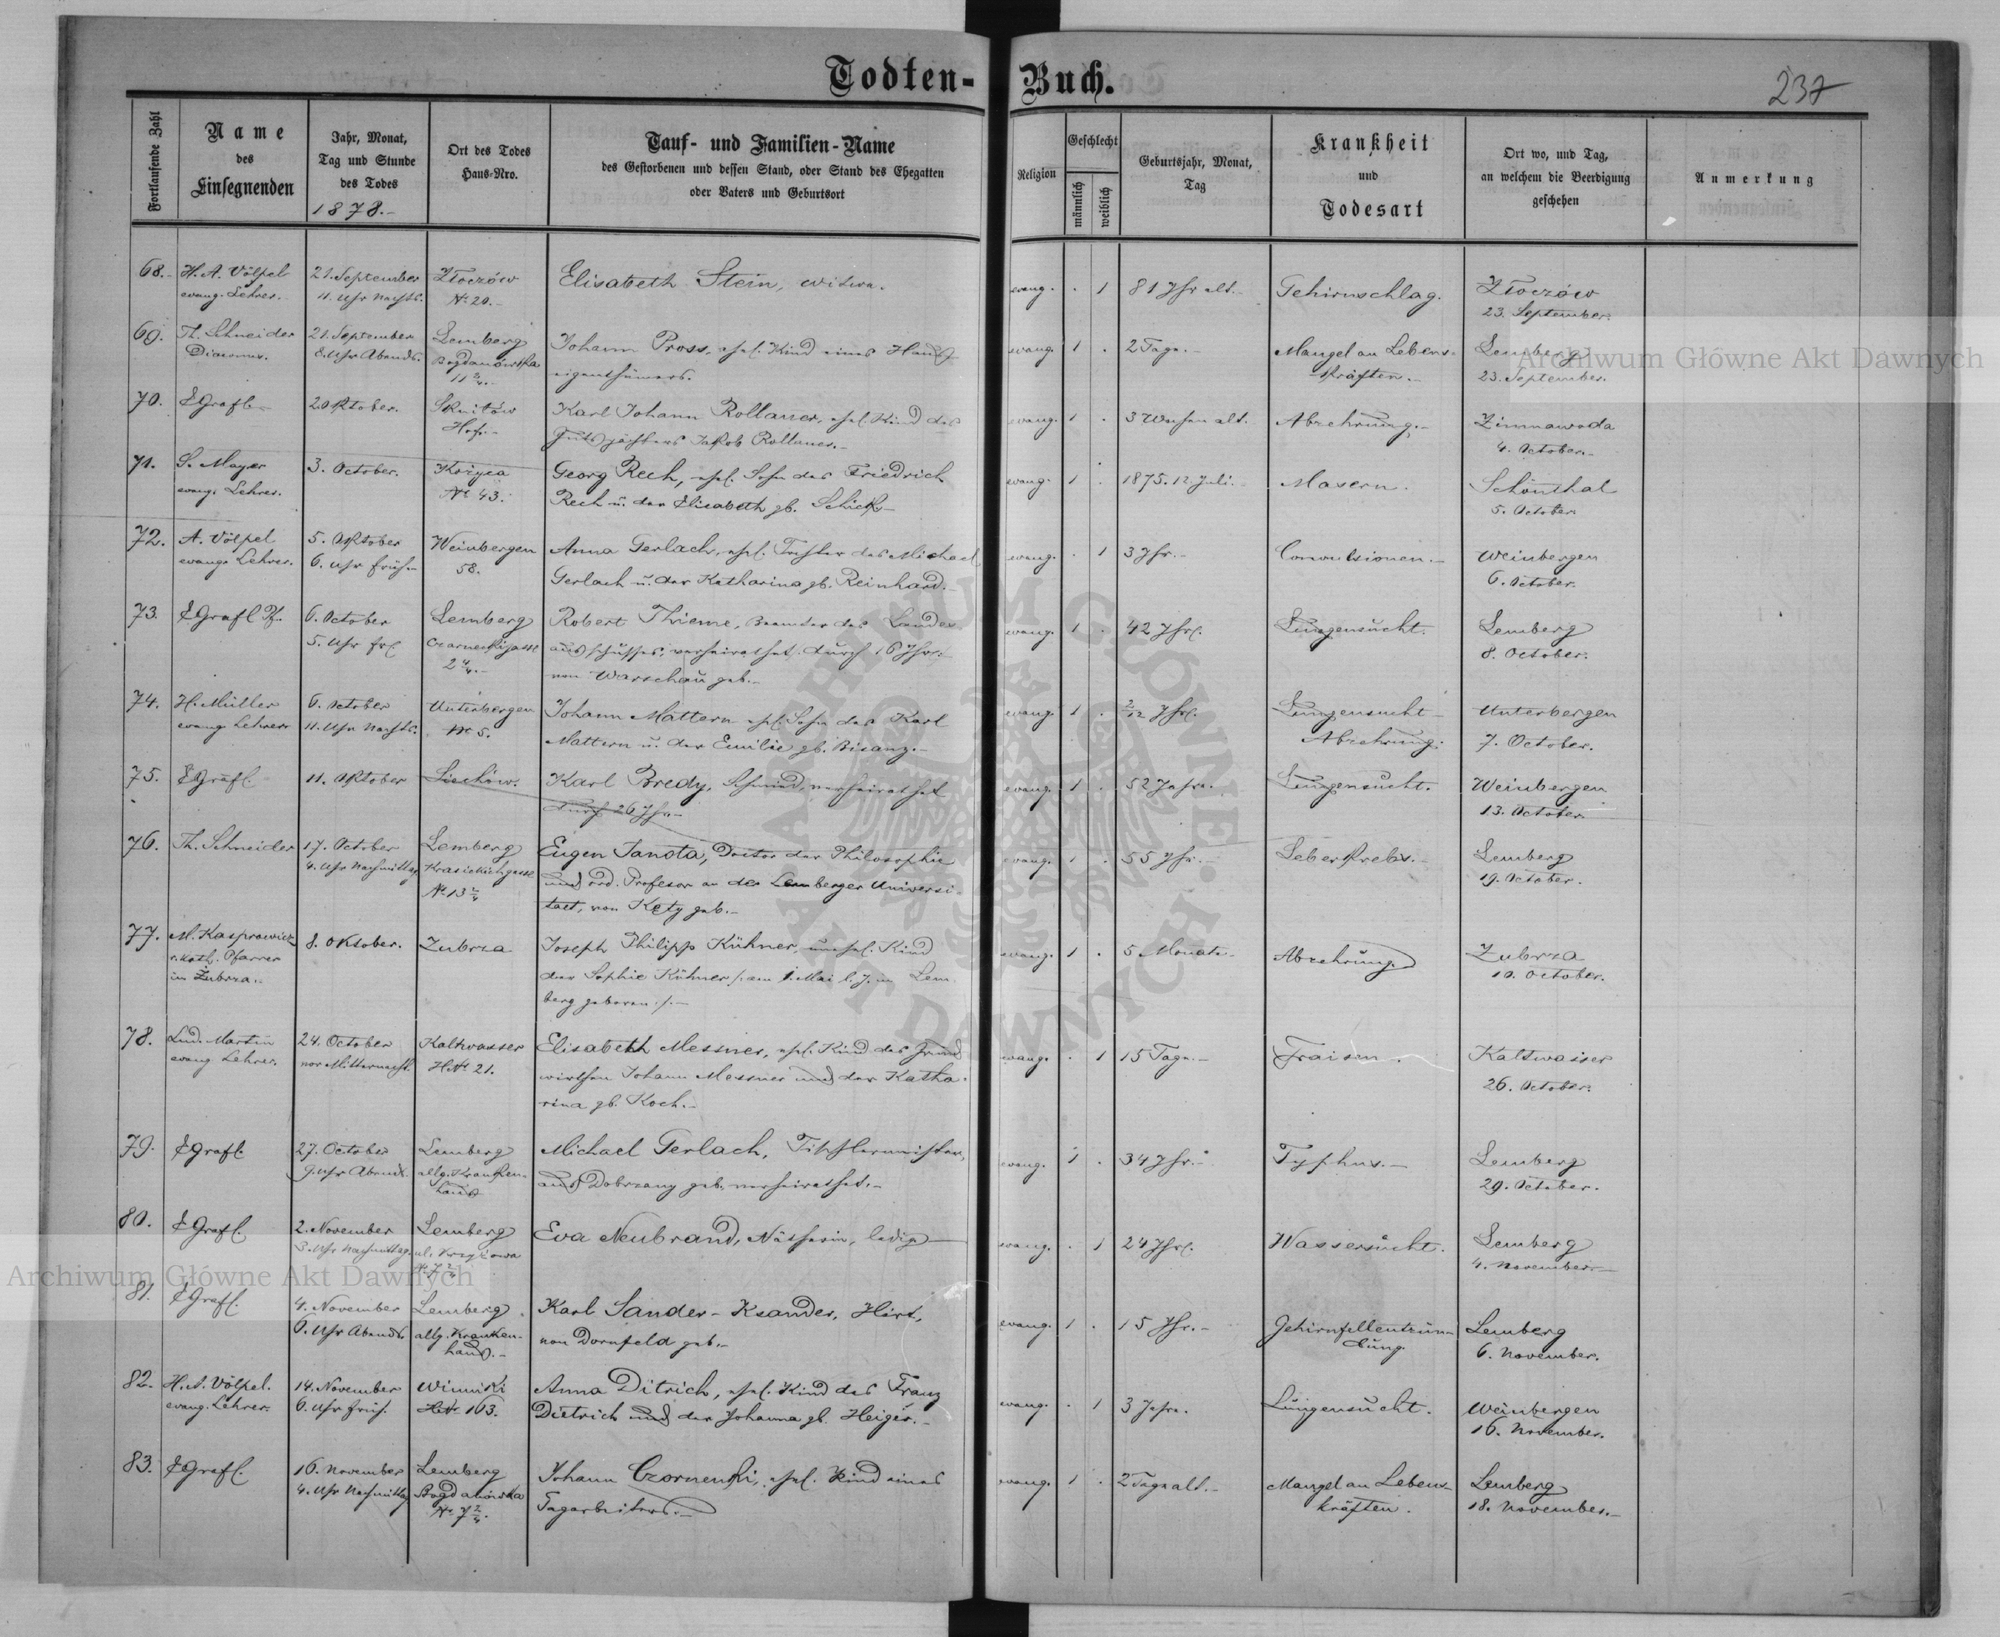 Todten-Buch.
237
Fortlaufende Zahl
Name
des
Einsegnenden
Jahr, Monat,
Tag und Stunde
des Todes
1878.-
Ort des Todes
Haus-Nro.
Tauf- und Familien-Name
des Gestorbenen und dessen Stand, oder Stand des Ehegatten
oder Vaters und Geburtsort
Religion
Geschlecht
männlich
weiblich
Geburtsjahr, Monat,
Tag
Krankheit
und
Todesart
Ort wo, und Tag,
an welchem die Beerdigung
geschehen
Anmerkung
68.- H. A. Völpel 21. September Złoczów Elisabeth Stein, witwe. evang. . 1 81 Jhr alt.- Gehirnschlag. Złoczów
evang. Lehrer. 11. Uhr Nachts. No 20.- 23. September.
69. Th. Schneider 21. September Lemberg Johann Pross, ehel. Kind eines Haus- evang. 1 . 2 Tage. Mangel an Lebens- Lemberg
Diaconus. 8. Uhr Abends. Bogdanówka eigenthümers. kräften.- 23. September.
11 2/4.-
70. E Grafl- 2 Oktober. Sknitów Karl Johann Rollauer, ehel. Kind des evang. 1 . 3 Wochen alt. Abzehrung.- Zimnawoda
Hof.- Gutspächters Jakob Rollauer.- 4. October.-
71. S. Mayer 3. October. Kożyca Georg Rech, ehel. Sohn des Friedrich evang. 1 . 1875. 12 Juli.- Masern. Schönthal
evang. Lehrer. No 43. Rech u. der Elisabeth gb. Schick- 5. October
72. A. Völpel 5. Oktober Weinbergen Anna Gerlach, ehel. Tochter des Michael evang. . 1 3 Jhr.- Convulsionen.- Weinbergen
evang. Lehrer. 6. Uhr früh 58. Gerlach u. der Katharina gb. Reinhard.- 6. October.
73. E Grafl Pf. 6. October Lemberg Robert Thieme, Beamter des Landes- evang. 1 . 42 Jhr. Lungensucht. Lemberg
5. Uhr fr. Czarneckigasse ausschusses, verheirathet durch 16 Jhre. 8. October.
2 4/4.- von Warschau geb.-
74. H. Müller 6. October Unterbergen Johann Mattern ehel. Sohn des Karl evang. 1 . 2/12 Jhr. Lungensucht- Unterbergen
evang Lehrer 11. Uhr Nachts. No 5. Mattern u. der Emilie gb. Bisanz.- Abzehrung. 7. October.
75. E Grafl. 11. Oktober Liechów. Karl Bredy, Schmied, verheirathet evang. 1 . 52 Jahre. Lungensucht. Weinbergen
durch 26 Jhr.- 13. October
76. Th. Schneider 17. October Lemberg Eugen Janota, Doctor der Philosophie evang. 1 . 55 Jhr. Leberkrebs.- Lemberg
4. Uhr Nachmittag Krasickichgasse und ord. Profesor an der Lemberger Universi- 19. October.
No 13 2/4 taet, von Kęty geb.-
77. M. Kasprowicz 8. Oktober. Zubrza Joseph Philipp Kühner, unehel. Kind evang. 1 . 5 Monate- Abzehrung Zubrza
r. kath. Pfarrer der Sophie Kühner /: am 1. Mai l. J. in Lem- 10. October.
in Zubrza.- berg geboren :/.-
78. Lud. Martin 24. October Kaltwasser Elisabeth Messner, ehel. Kind des Grund- evang. . 1 15 Tage.- Fraisen. Kaltwasser
evang Lehrer. vor Mitternacht. HNo 21. wirthen Johann Messner und der Katha- 26. October.
rina gb. Koch.-
79. E Grafl. 27. October Lemberg Michael Gerlach, Tischlermeister, evang. 1 . 34 Jhr.- Typhus.- Lemberg
9. Uhr Abends. allg. Kranken- aus Dobrzany geb. verheirathet.- 29. October.
haus
80. E Grafl. 2. November Lemberg Eva Neubrand, Nätherin, ledig- evang. . 1 24 Jhr. Wassersucht. Lemberg
3. Uhr Nachmittag. ul. Krzyżowa 4. November.-
No 7 2/4
81. E Grafl. 4. November Lemberg Karl Sander-Ksander, Hirt, evang. 1 . 15 Jhr.- Gehirnfellentzün- Lemberg
6. Uhr Abends allg. Kranken- von Dornfeld geb.- dung 6. November.
haus.-
82. H. A. Völpel. 14. November Winniki Anna Ditrich, ehel. Kind des Franz evang. . 1 3 Jahre. Lungensucht. Weinbergen
evang. Lehrer. 6. Uhr früh. HNo 163. Dietrich und der Johanna gb. Heiger.- 16. November.
83. E Grafl. 16. November Lemberg Johann Czornenki, ehel. Kind eines evang. 1 . 2 Tage alt.- Mangel an Lebens- Lemberg
4. Uhr Nachmittag Bogdanówka Tagarbeiters.- kräften. 18. November.-
No 7 2/4.
Archiwum Główne Akt Dawnych
Archiwum Główne Akt Dawnych
ARCHIWUM GŁÓWNE AKT DAWNYCH